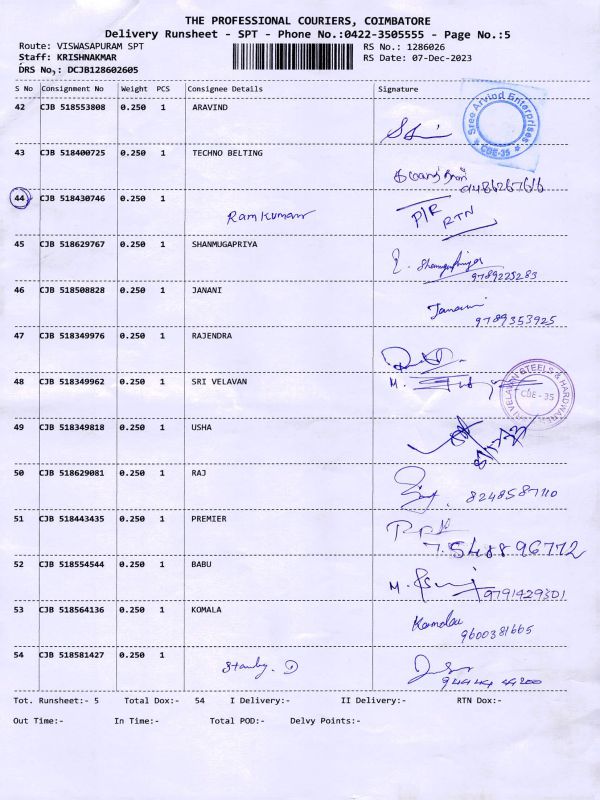 THE PROFESSIONAL COURIERS, COIMBATORE
Delivery Runsheet - SPT - Phone No.:0422-3505555 - Page No.:5
Route: VISWASAPURAM SPT RS No.: 1286026
Staff: KRISHNAKMAR RS Date: 07-Dec-2023
DRS No.: DCJB128602605
S No Consignment No Weight PCS Consignee Details Signature
42 CJB 518553808 0.250 1 ARAVIND
Sree Arvind Enterprises
CBE-35
43 CJB 518400725 0.250 1 TECHNO BELTING
44 CJB 518430746 0.250 1 Ramkumar P/R RTN
45 CJB 518629767 0.250 1 SHANMUGAPRIYA Shanmugapriya
9789225283
46 CJB 518508828 0.250 1 JANANI Janani
9789353925
47 CJB 518349976 0.250 1 RAJENDRA
48 CJB 518349962 0.250 1 SRI VELAVAN M.
SRI VELAVAN STEELS & HARDWARE
CBE-35
49 CJB 518349818 0.250 1 USHA
50 CJB 518629081 0.250 1 RAJ 8248587110
51 CJB 518443435 0.250 1 PREMIER
7548896772
52 CJB 518554544 0.250 1 BABU M.
9791429301
53 CJB 518564136 0.250 1 KOMALA Komala
9600381665
54 CJB 518581427 0.250 1 Stanley. D
9444444200
Tot. Runsheet:- 5 Total Dox:- 54 I Delivery:- II Delivery:- RTN Dox:-
Out Time:- In Time:- Total POD:- Delvy Points:-